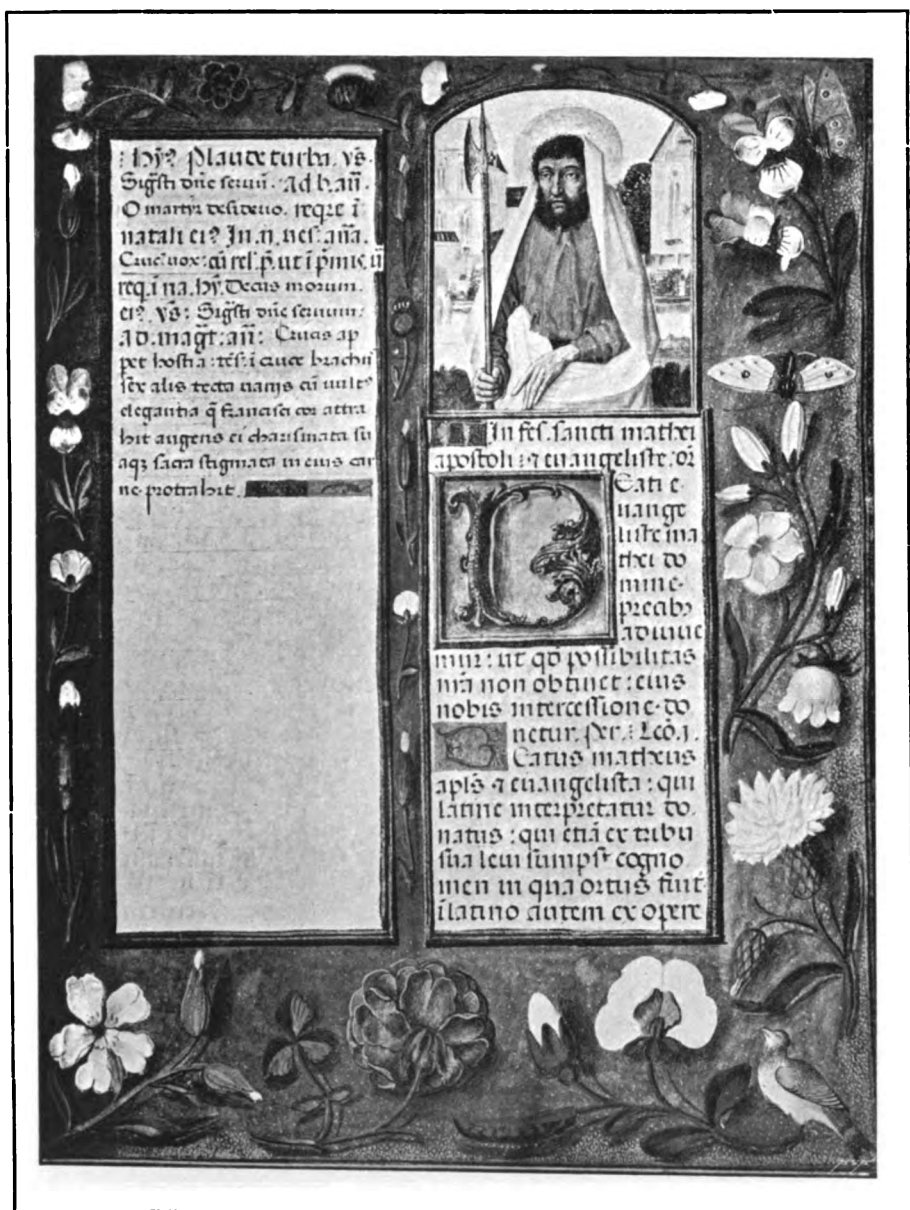 : hȳꝰ plaude turba. vs̄.
Sig̃sti dñe servū. ad b. añ.
O martyr desiderio. reqre ī
natali eiꝰ In .ii. nes. aña.
Crucis vox: cū rel. p̄. ut ī pͥmis. ū
req. ī na. hȳ. Decus morum.
eiꝰ. vs̄: Sig̃sti dñe servum:
ad. magt̄: añ: Crucis ap
pet hostia: tēs. ī cruce brachijs
sex alis tecta varijs cū vultꝰ
elegantia q̄ francisci cor attra
hit augens ei charismata su
aqꝫ sacra stigmata in eius car
ne protrahit.
In fes. sancti mathei
apostoli: ⁊ euangeliste. or̄
Beati e
uange
liste ma
thei do
mine
precibꝫ
adiuve
mur: ut qd̄ possibilitas
nr̄a non obtinet: eius
nobis intercessione do
netur. Per. : Lcō. j.
Beatus matheus
apl̄s ⁊ euangelista: qui
latine interpretatur do
natus: qui etiā ex tribu
sua leui sumpsit cogno
men in qua ortus fuit
ilatino autem ex opere